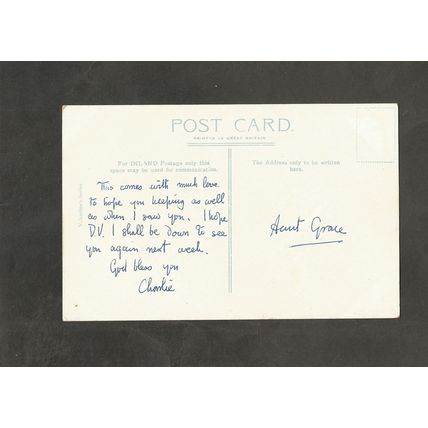 POST CARD.
PRINTED IN GREAT BRITAIN
For INLAND Postage only this
space may be used for communication.
The Address only to be written
here.
Valentine's Series
This comes with much love
to hope you keeping as well
as when I saw you. I hope
D.V. I shall be down to see
you again next week.
God bless you
Charlie
Aunt Grace